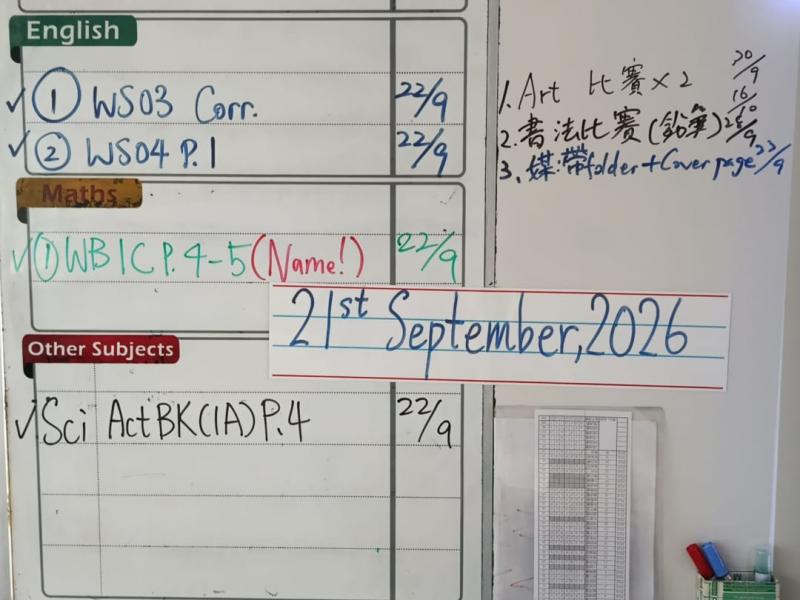 English
✓ ① WS03 Corr. 22/9
✓ ② WS04 P.1 22/9
Maths
✓ ① WB 1C P.4-5 (Name!) 22/9
Other Subjects
✓ Sci ActBK(1A) P.4 22/9
21st September, 2026
1. Art 比賽×2 30/9 16/10
2. 書法比賽(鉛筆) 25/9
3. 媒·帶folder+Cover page 23/9